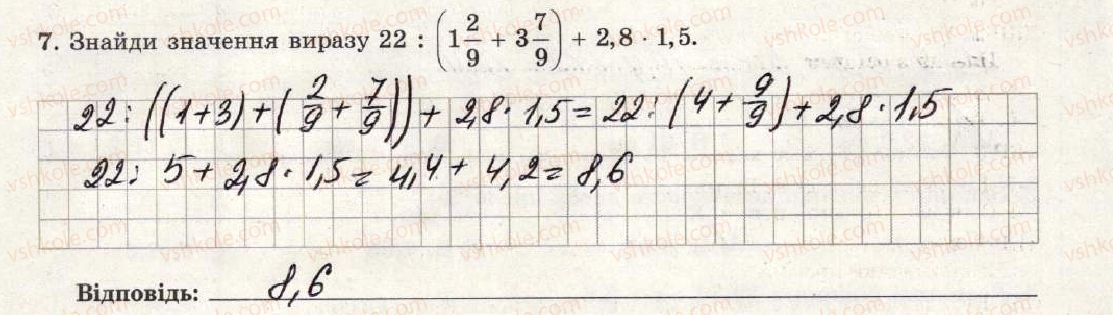 7. Знайди значення виразу 22 : (1 2/9 + 3 7/9) + 2,8 · 1,5.
22 : ((1+3) + (2/9 + 7/9)) + 2,8 · 1,5 = 22 : (4 + 9/9) + 2,8 · 1,5
22 : 5 + 2,8 · 1,5 = 4,4 + 4,2 = 8,6
Відповідь: 8,6